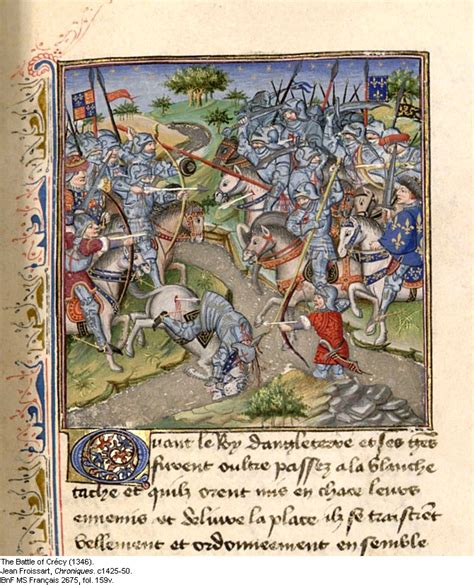 Quant le Roy dangleterre et ses gẽs
furent oultre passez a la blanche
tache et quilz orent mis en chace leurs
ennemis et delivre la place ilz se traistrẽt
bellement et ordonneement en semble
The Battle of Crécy (1346).
Jean Froissart, Chroniques. c1425-50.
BnF MS Français 2675, fol. 159v.